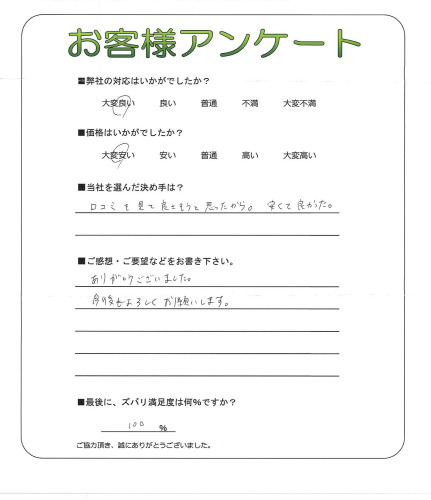 お客様アンケート
■弊社の対応はいかがでしたか？
大変良い 良い 普通 不満 大変不満
■価格はいかがでしたか？
大変安い 安い 普通 高い 大変高い
■当社を選んだ決め手は？
口コミを見て良さそうと思ったから。 安くて良かった。
■ご感想・ご要望などをお書き下さい。
ありがとうございました。
今後もよろしくお願いします。
■最後に、ズバリ満足度は何％ですか？
100 ％
ご協力頂き、誠にありがとうございました。